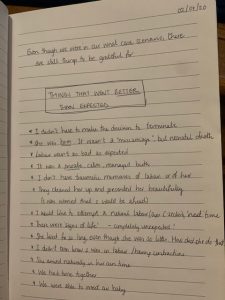 02/07/20
Even though we were in our worst case scenario, there
are still things to be grateful for
THINGS THAT WENT BETTER
THAN EXPECTED
* I didn't have to make the decision to terminate
* She was born. It wasn't a 'miscarriage' but neonatal death
* Labour wasn't as bad as expected
* It was a private, calm, managed birth
* I don't have traumatic memories of labour or of her
* They cleaned her up and presented her beautifully
(I was worried that I would be afraid)
* I would like to attempt a natural labour/
* There were signs of life' - completely unexpected
* She lived for so long even though she was so little. How did she do that
* I didn't even know I was in labour / having contractions
* She arrived naturally in her own time
* We had time together
* We were able to meet our baby